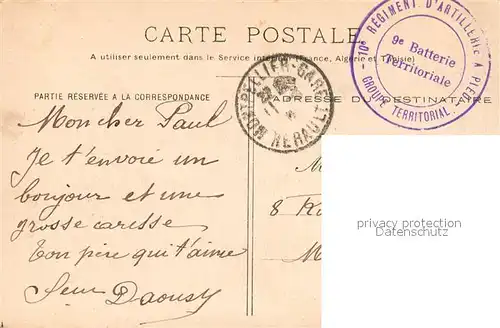 CARTE POSTALE
A utiliser seulement dans le Service intérieur (France, Algérie et Tunisie)
PARTIE RÉSERVÉE A LA CORRESPONDANCE
ADRESSE DU DESTINATAIRE
MONTPELLIER-GARE
HERAULT
10e RÉGIMENT D'ARTILLERIE A PIED
9e Batterie
Territoriale
GROUPE TERRITORIAL
Mon cher Paul
Je t'envoie un
bonjour et une
grosse caresse
Ton père qui t'aime
8
privacy protection
Datenschutz